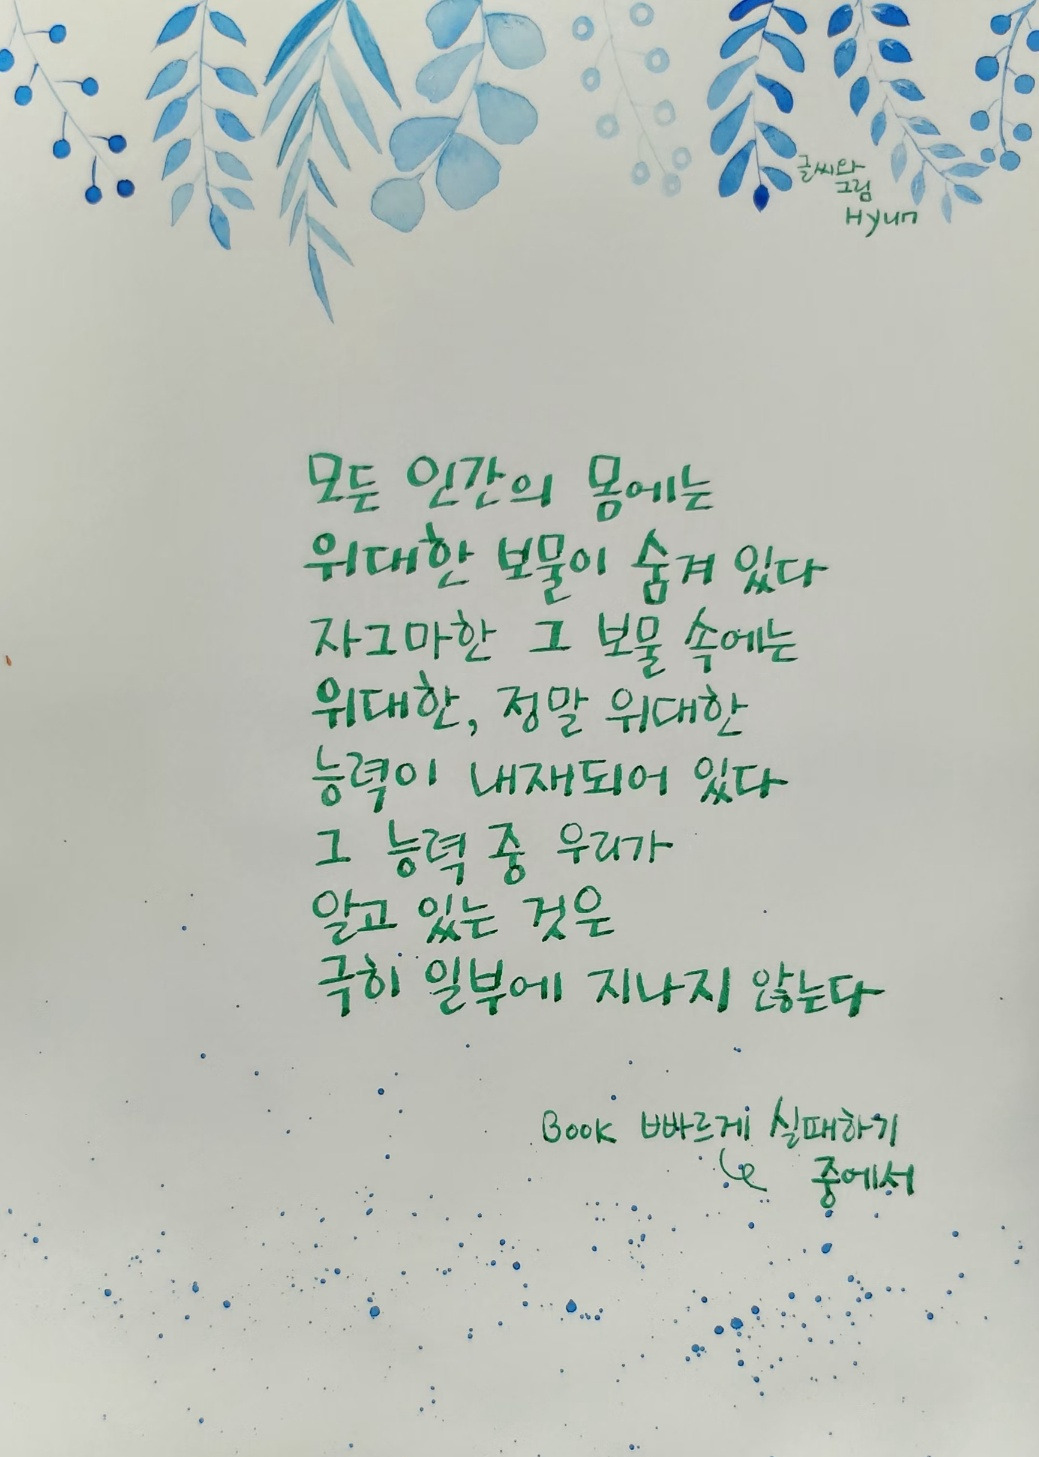 글씨와
그림
Hyun
모든 인간의 몸에는
위대한 보물이 숨겨 있다
자그마한 그 보물 속에는
위대한, 정말 위대한
능력이 내재되어 있다
그 능력 중 우리가
알고 있는 것은
극히 일부에 지나지 않는다
Book 빠르게 실패하기
중에서